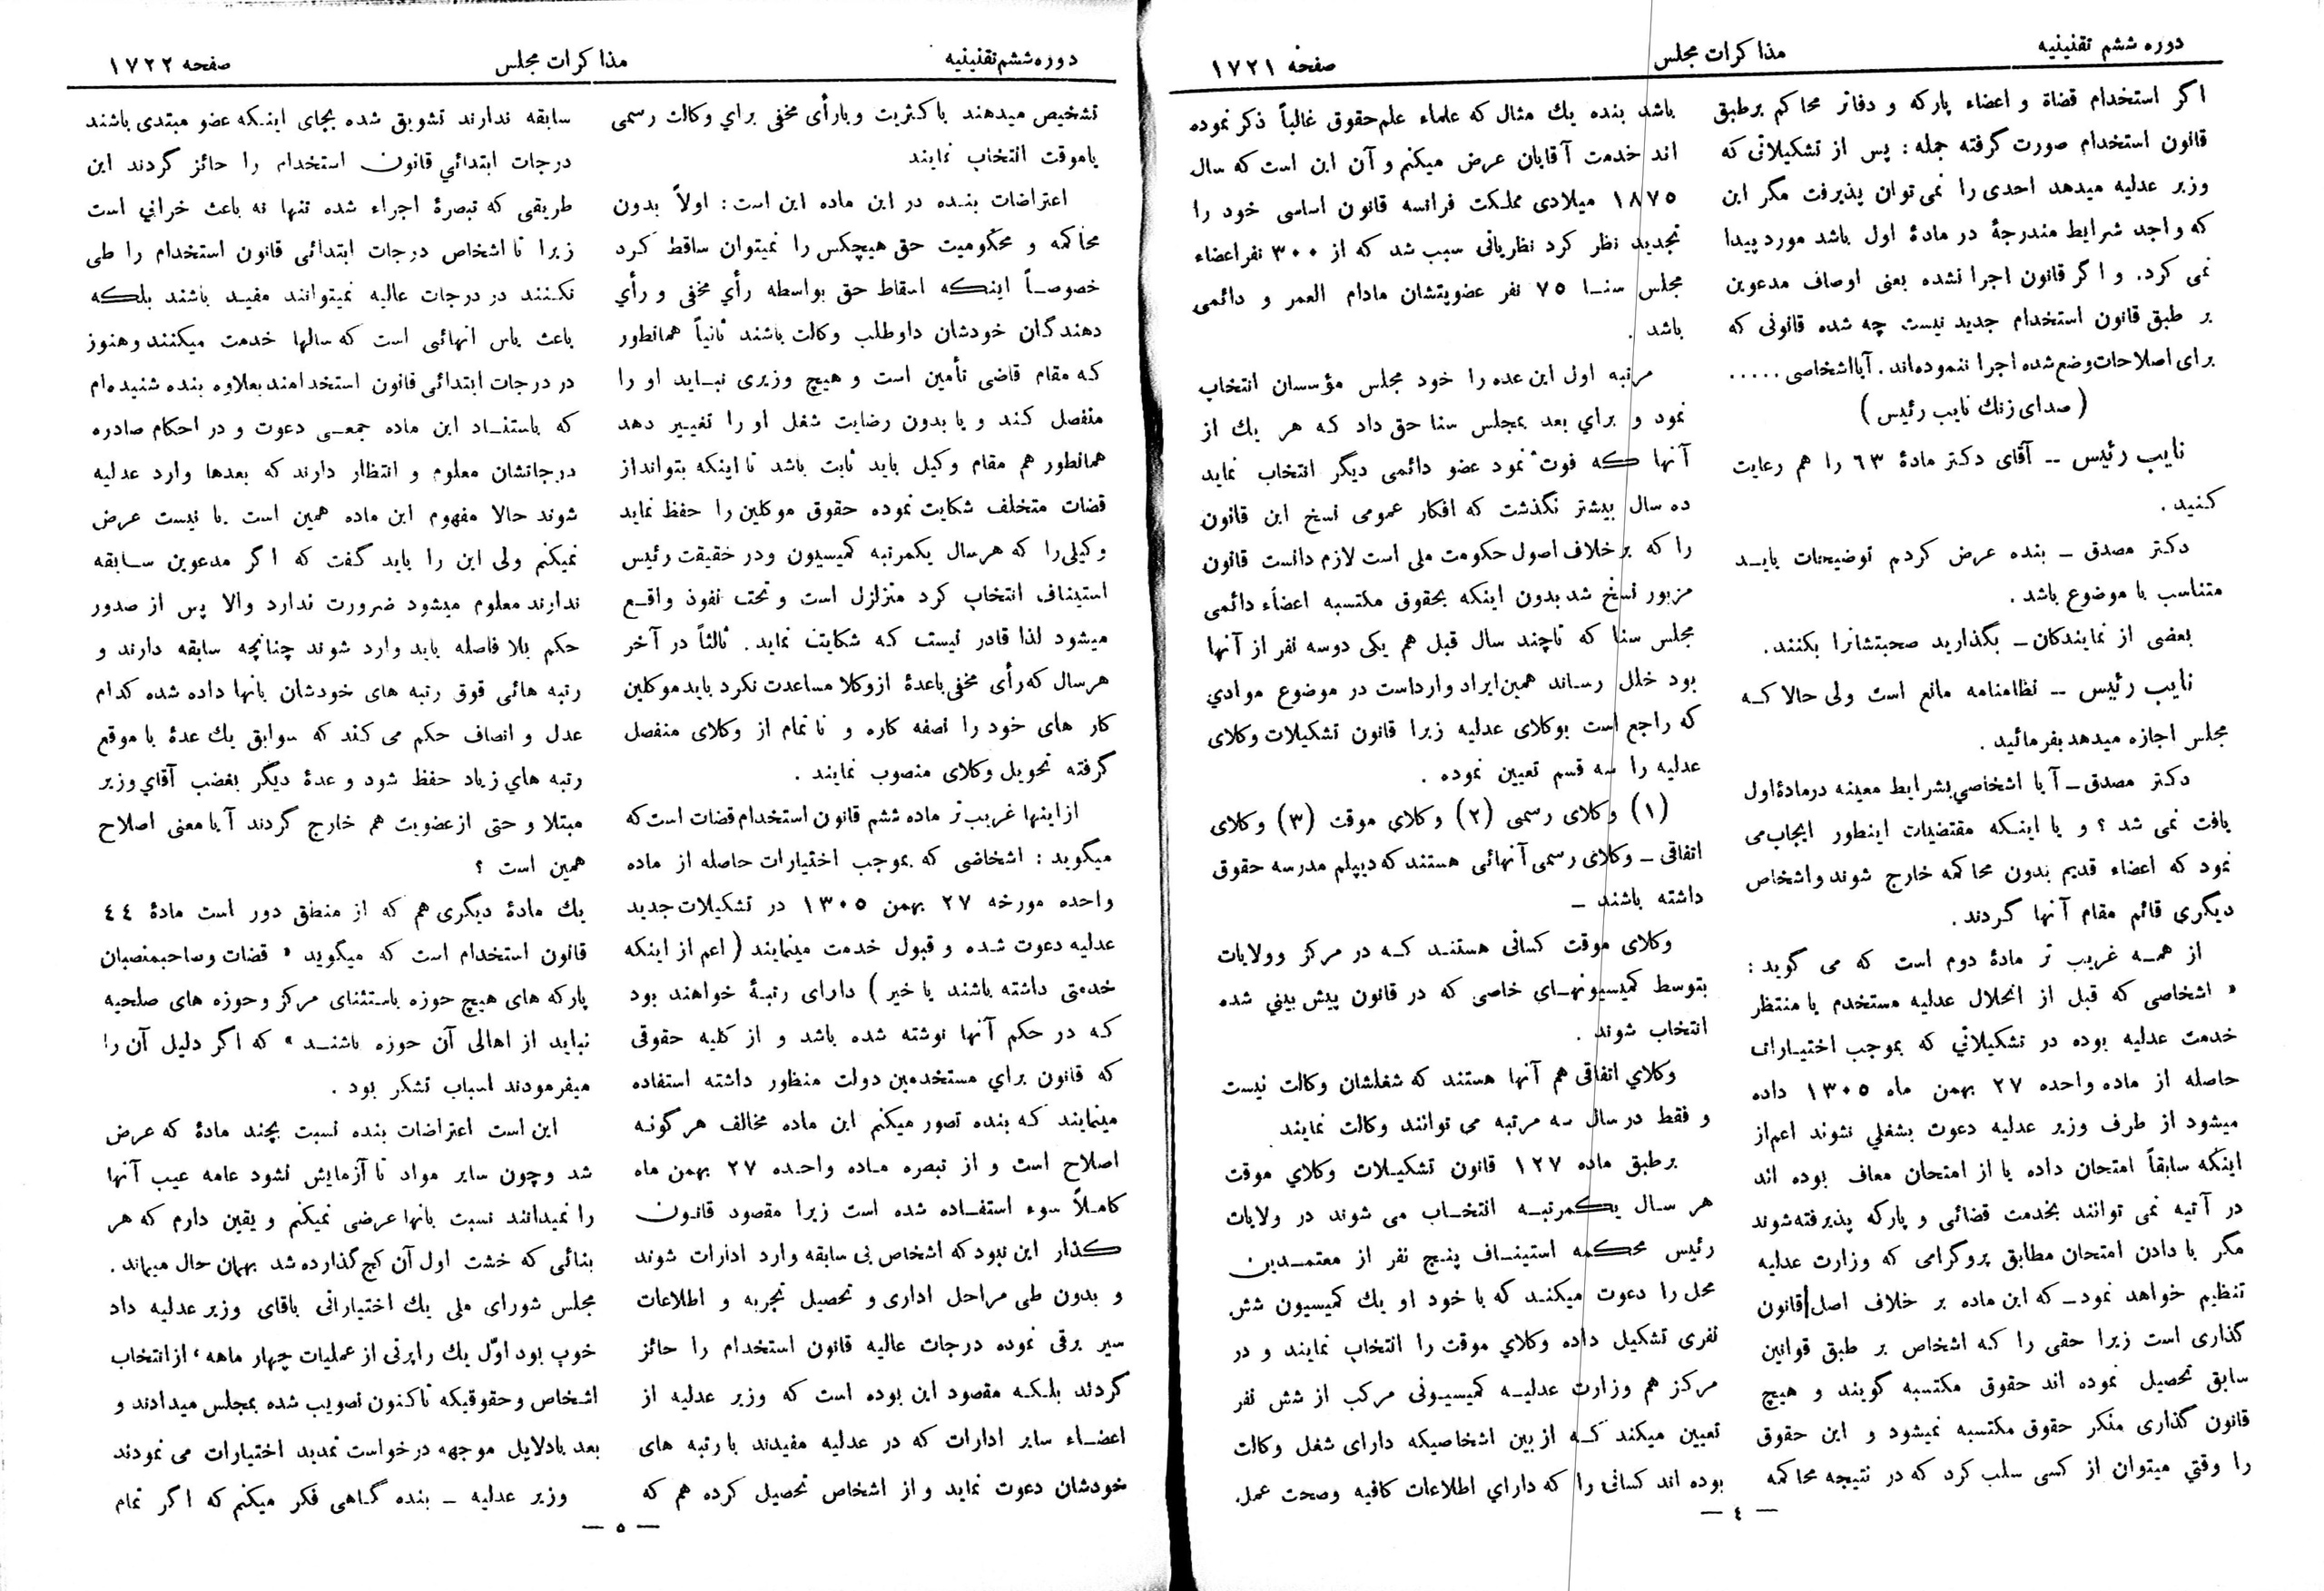 دوره ششم تقنینیه
مذاکرات مجلس
صفحه ۱۷۲۱
اگر استخدام قضاة و اعضاء پارکه و دفاتر محاکم برطبق
قانون استخدام صورت گرفته جمله: پس از تشکیلاتی که
وزیر عدلیه میدهد احدی را نمی توان پذیرفت مگر این
که واجد شرایط مندرجهٔ در مادهٔ اول باشد مورد پیدا
نمی کرد. و اگر قانون اجرا نشده یعنی اوصاف مدعوین
بر طبق قانون استخدام جدید نیست چه شده قانونی که
برای اصلاحات وضع شده اجرا ننموده‌اند. آیا اشخاصی .....
(صدای زنك نایب رئیس)
نایب رئیس ــ آقای دکتر مادهٔ ٦٣ را هم رعایت
کنید.
دکتر مصدق ـ بنده عرض کردم توضیحات بایـد
متناسب با موضوع باشد.
بعضی از نمایندکان ـ بگذارید صحبتشانرا بکنند.
نایب رئیس ــ نظامنامه مانع است ولی حالا کـه
مجلس اجازه میدهد بفرمائید.
دکتر مصدق ـ آیا اشخاصي بشرایط معینه در مادهٔ اول
یافت نمی شد؟ و یا اینـکه مقتضیات اینطور ایجاب می
نمود که اعضاء قدیم بدون محاکمه خارج شوند و اشخاص
دیگری قائم مقام آنها گردند.
از همـه غریب تر مادهٔ دوم است که می گوید:
« اشخاصی که قبل از انحلال عدلیه مستخدم یا منتظر
خدمت عدلیه بوده در تشکیلاتي که بموجب اختیـارات
حاصله از ماده واحده ۲۷ بهمن ماه ۱۳۰۵ داده
میشود از طرف وزیر عدلیه دعوت بشغلي نشوند اعم از
اینکه سابقاً امتحان داده یا از امتحان معاف بوده اند
در آتیه نمی توانند بخدمت قضائی و پارکه پذیرفته شوند
مگر با دادن امتحان مطابق پروگرامی که وزارت عدلیه
تنظیم خواهد نمود ـ که این ماده بر خلاف اصل قانون
گذاری است زیرا حقی را که اشخاص بر طبق قوانین
سابق تحصیل نموده اند حقوق مکتسبه گویند و هیچ
قانون گذاری منکر حقوق مکتسبه نمیشود و این حقوق
را وقتي میتوان از کسی سلب کرد که در نتیجه محاکمه
باشد بنده یك مثال که علماء علم حقوق غالباً ذکر نموده
اند خدمت آقایان عرض میکنم و آن این است که سال
۱۸۷۵ میلادی مملکت فرانسه قانون اساسی خود را
تجدید نظر کرد نظریاتی سبب شد که از ۳۰۰ نفر اعضاء
مجلس سنـا ۷۵ نفر عضویتشان مادام العمر و دائمی
باشد.
مرتبه اول این عده را خود مجلس مؤسسان انتخاب
نمود و براي بعد بمجلس سنا حق داد که هر یك از
آنها که فوت نمود عضو دائمی دیگر انتخاب نماید
ده سال بیشتر نگذشت که افکار عمومی نسخ این قانون
را که برخلاف اصول حکومت ملی است لازم دانست قانون
مزبور نسخ شد بدون اینکه بحقوق مکتسبه اعضاء دائمی
مجلس سنا که تا چند سال قبل هم یکی دوسه نفر از آنها
بود خلل رساند همین ایراد وارد است در موضوع موادي
که راجع است بوکلای عدلیه زیرا قانون تشکیلات وکلای
عدلیه را سه قسم تعیین نموده.
(۱) وکلای رسمی (۲) وکلاي موقت (۳) وکلای
اتفاقی ـ وکلای رسمی آنهائی هستند که دیپلم مدرسه حقوق
داشته باشند ـ
وکلای موقت کسانی هستنـد کـه در مرکز و ولایات
بتوسط کمیسیونهـای خاصی که در قانون پیش بیني شده
انتخاب شوند.
وکلاي اتفاقی هم آنها هستند که شغلشان وکالت نیست
و فقط در سال سه مرتبه می توانند وکالت نمایند
برطبق ماده ۱۲۷ قانون تشکیـلات وکلاي موقت
هر سـال یکمرتبـه انتخـاب می شوند در ولایات
رئیس محکمه استینـاف پنـج نفر از معتمـدین
محل را دعوت میکنـد که با خود او یك کمیسیون شش
نفری تشکیل داده وکلاي موقت را انتخاب نمایند و در
مرکز هم وزارت عدلیـه کمیسیـونی مرکب از شش نفر
تعیین میکند کـه از بین اشخاصیکه دارای شغل وکالت
بوده اند کسانی را که داراي اطلاعات کافیه و صحت عمل
ـ ٤ ـ
دوره ششم تقنینیه
مذاکرات مجلس
صفحه ۱۷۲۲
تشخیص میدهند باکثریت و بارأی مخفی براي وکالت رسمی
یا موقت انتخاب نمایند
اعتراضات بنـده در این ماده این است: اولاً بدون
محاکمه و محکومیت حق هیچکس را نمیتوان ساقط کرد
خصوصـاً اینکه اسقاط حق بواسطه رأي مخفی و رأي
دهندگان خودشان داوطلب وکالت باشند ثانیاً همانطور
که مقام قاضی تأمین است و هیچ وزیری نبـاید او را
منفصل کـند و یا بدون رضایت شغل او را تغییـر دهد
همانطور هم مقام وکیل باید ثابت باشد تا اینکه بتواند از
قضات متخلف شکایت نموده حقوق موکلین را حفظ نماید
وکیلی را که هر سال یکمرتبه کمیسیون و در حقیقت رئیس
استیناف انتخاب کرد متزلزل است و تحت نفوذ واقـع
میشود لذا قادر نیست کـه شکایت نماید. ثالثاً در آخر
هر سال که رأی مخفی باعدهٔ از وکلا مساعدت نکرد باید موکلین
کار های خود را نصفه کاره و نا تمام از وکلای منفصل
گرفته تحویل وکلای منصوب نمایند.
از اینها غریب تر ماده ششم قانون استخدام قضات است که
میگوید: اشخاصی که بموجب اختیارات حاصله از ماده
واحده مورخه ۲۷ بهمن ۱۳۰۵ در تشکیلات جدید
عدلیه دعوت شده و قبول خدمت مینمایند (اعم از اینکه
خدمتی داشته باشند یا خیر) دارای رتبهٔ خواهند بود
کـه در حکم آنها نوشته شده باشد و از کلیه حقوقی
که قانون براي مستخدمین دولت منظور داشته استفاده
مینمایند کـه بنده تصور میکنم این ماده مخالف هر گونـه
اصلاح است و از تبصره مـاده واحـده ۲۷ بهمن ماه
کامـلاً سوء استفـاده شده است زیرا مقصود قانون
گذار این نبود که اشخاص بی سابقه وارد ادارات شوند
و بدون طی مراحل اداری و تحصیل تجربه و اطلاعات
سیر برقی نموده درجات عالیه قانون استخدام را حائز
گردند بلـکـه مقصود این بوده است که وزیر عدلیه از
اعضـاء سایر ادارات که در عدلیه مفیدند با رتبه های
خودشان دعوت نماید و از اشخاص تحصیل کرده هم که
سابقه ندارند تشویق شده بجای اینـکه عضو مبتدی باشند
درجات ابتدائي قانون استخدام را حائز گردند این
طریقی که تبصرهٔ اجراء شده تنها نه باعث خرابي است
زیرا تا اشخاص درجات ابتدائی قانون استخدام را طی
نکـنند در درجات عالیه نمیتوانند مفیـد باشند بلـکه
باعث یاس انهائی است که سالها خدمت میکنند و هنوز
در درجات ابتدائی قانون استخدامند بعلاوه بنده شنیده‌ام
که باستنـاد این ماده جمعـی دعوت و در احکام صادره
درجاتشان معلوم و انتظار دارند که بعدها وارد عدلیه
شوند حالا مفهوم این ماده همین است یا نیست عرض
نمیکنم ولی این را باید گفت که اگر مدعوین سـابقه
ندارند معلوم میشود ضرورت ندارد والا پس از صدور
حکم بلا فاصله باید وارد شوند چنانچه سابقه دارند و
رتبه هائی فوق رتبه های خودشان بانها داده شده کدام
عدل و انصاف حکم می کند که سوابق یك عدهٔ با موقع
رتبه هاي زیاد حفظ شود و عدهٔ دیگر بغضب آقاي وزیر
مبتلا و حتی از عضویت هم خارج گردند آیا معنی اصلاح
همین است؟
یك مادهٔ دیگری هم که از منطق دور است مادهٔ ٤٤
قانون استخدام است که میگوید « قضات و صاحبمنصبان
پارکه های هیچ حوزه باستثنای مرکز و حوزه های صلحیه
نباید از اهالی آن حوزه باشنـد » که اگر دلیل آن را
میفرمودند اسباب تشکر بود.
این است اعتراضات بنده نسبت بچند مادهٔ که عرض
شد و چون سایر مواد تا آزمایش نشود عامه عیب آنها
را نمیدانند نسبت بانها عرضی نمیکنم و یقین دارم که هر
بنائی که خشت اول آن کج گذارده شد بهمان حال میماند.
مجلس شورای ملی یك اختیاراتی باقای وزیر عدلیه داد
خوب بود اوّل یك راپرتی از عملیات چهار ماهه، از انتخاب
اشخاص و حقوقیکه تاکنون تصویب شده بمجلس میدادند و
بعد بادلایل موجهه درخواست تمدید اختیارات می نمودند
وزیر عدلیه ــ بنده گـاهی فکر میکنم که اگر تمام
ـ ٥ ـ